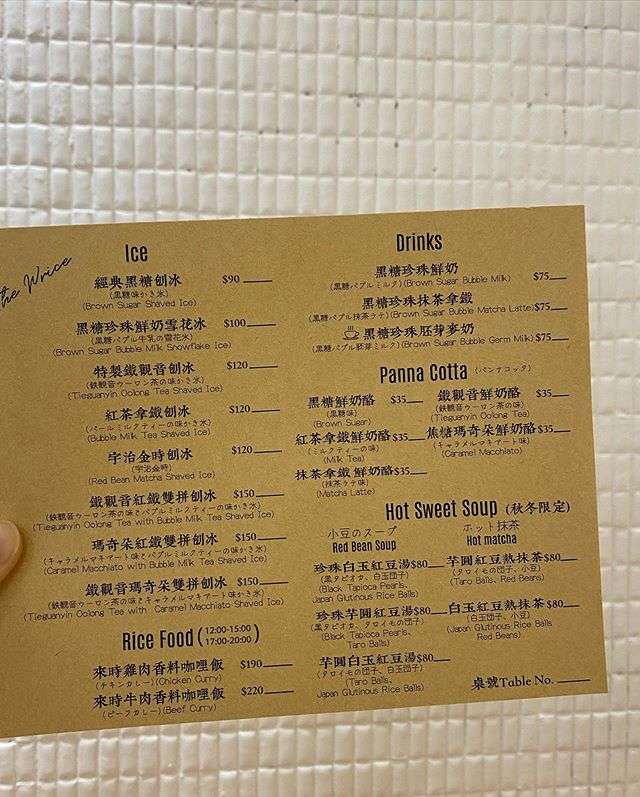 the Wrice
Ice
經典黑糖刨冰 $90
(黒糖味かき氷)
(Brown Sugar Shaved Ice)
黑糖珍珠鮮奶雪花冰 $100
(黒糖バブル牛乳の雪花氷)
(Brown Sugar Bubble Milk Snowflake Ice)
特製鐵觀音刨冰 $120
(鉄観音ウーロン茶の味かき氷)
(Tieguanyin Oolong Tea Shaved Ice)
紅茶拿鐵刨冰 $120
(パールミルクティーの味かき氷)
(Bubble Milk Tea Shaved Ice)
宇治金時刨冰 $120
(宇治金時)
(Red Bean Matcha Shaved Ice)
鐵觀音紅鐵雙拼刨冰 $150
(鉄観音ウーロン茶の味さバブルミルクティーの味かき氷)
(Tieguanyin Oolong Tea with Bubble Milk Tea Shaved Ice)
瑪奇朵紅鐵雙拼刨冰 $150
(キャラメルマキアート味さバブルミルクティーの味かき氷)
(Caramel Macchiato with Bubble Milk Tea Shaved Ice)
鐵觀音瑪奇朵雙拼刨冰 $150
(鉄観音ウーロン茶の味とキャラメルマキアートの味かき氷)
(Tieguanyin Oolong Tea with Caramel Macchiato Shaved Ice)
Rice Food (12:00-15:00
17:00-20:00)
來時雞肉香料咖哩飯 $190
(チキンカレー)(Chicken Curry)
來時牛肉香料咖哩飯 $220
(ビーフカレー)(Beef Curry)
Drinks
黑糖珍珠鮮奶 $75
(黒糖バブルミルク)(Brown Sugar Bubble Milk)
黑糖珍珠抹茶拿鐵
(黒糖バブル抹茶ラテ)(Brown Sugar Bubble Matcha Latte) $75
黑糖珍珠胚芽麥奶
(黒糖バブル胚芽ミルク)(Brown Sugar Bubble Germ Milk) $75
Panna Cotta (パンナコッタ)
黑糖鮮奶酪 $35
(黒糖味)
(Brown Sugar)
鐵觀音鮮奶酪 $35
(鉄観音ウーロン茶の味)
(Tieguanyin Oolong Tea)
紅茶拿鐵鮮奶酪 $35
(ミルクティーの味)
(Milk Tea)
焦糖瑪奇朵鮮奶酪 $35
(キャラメルマキアート味)
(Caramel Macchiato)
抹茶拿鐵 鮮奶酪 $35
(抹茶ラテ味)
(Matcha Latte)
Hot Sweet Soup (秋冬限定)
小豆のスープ
Red Bean Soup
珍珠白玉紅豆湯 $80
(黒タピオカ、白玉団子)
(Black Tapioca Pearls,
Japan Glutinous Rice Balls)
珍珠芋圓紅豆湯 $80
(黒タピオカ、タロイモの団子)
(Black Tapioca Pearls,
Taro Balls)
芋圓白玉紅豆湯 $80
(タロイモの団子、白玉団子)
(Taro Balls,
Japan Glutinous Rice Balls)
ホット抹茶
Hot matcha
芋圓紅豆熱抹茶 $80
(タロイモの団子、小豆)
(Taro Balls, Red Beans)
白玉紅豆熱抹茶 $80
(白玉団子、小豆)
(Japan Glutinous Rice Balls
Red Beans)
桌號Table No.